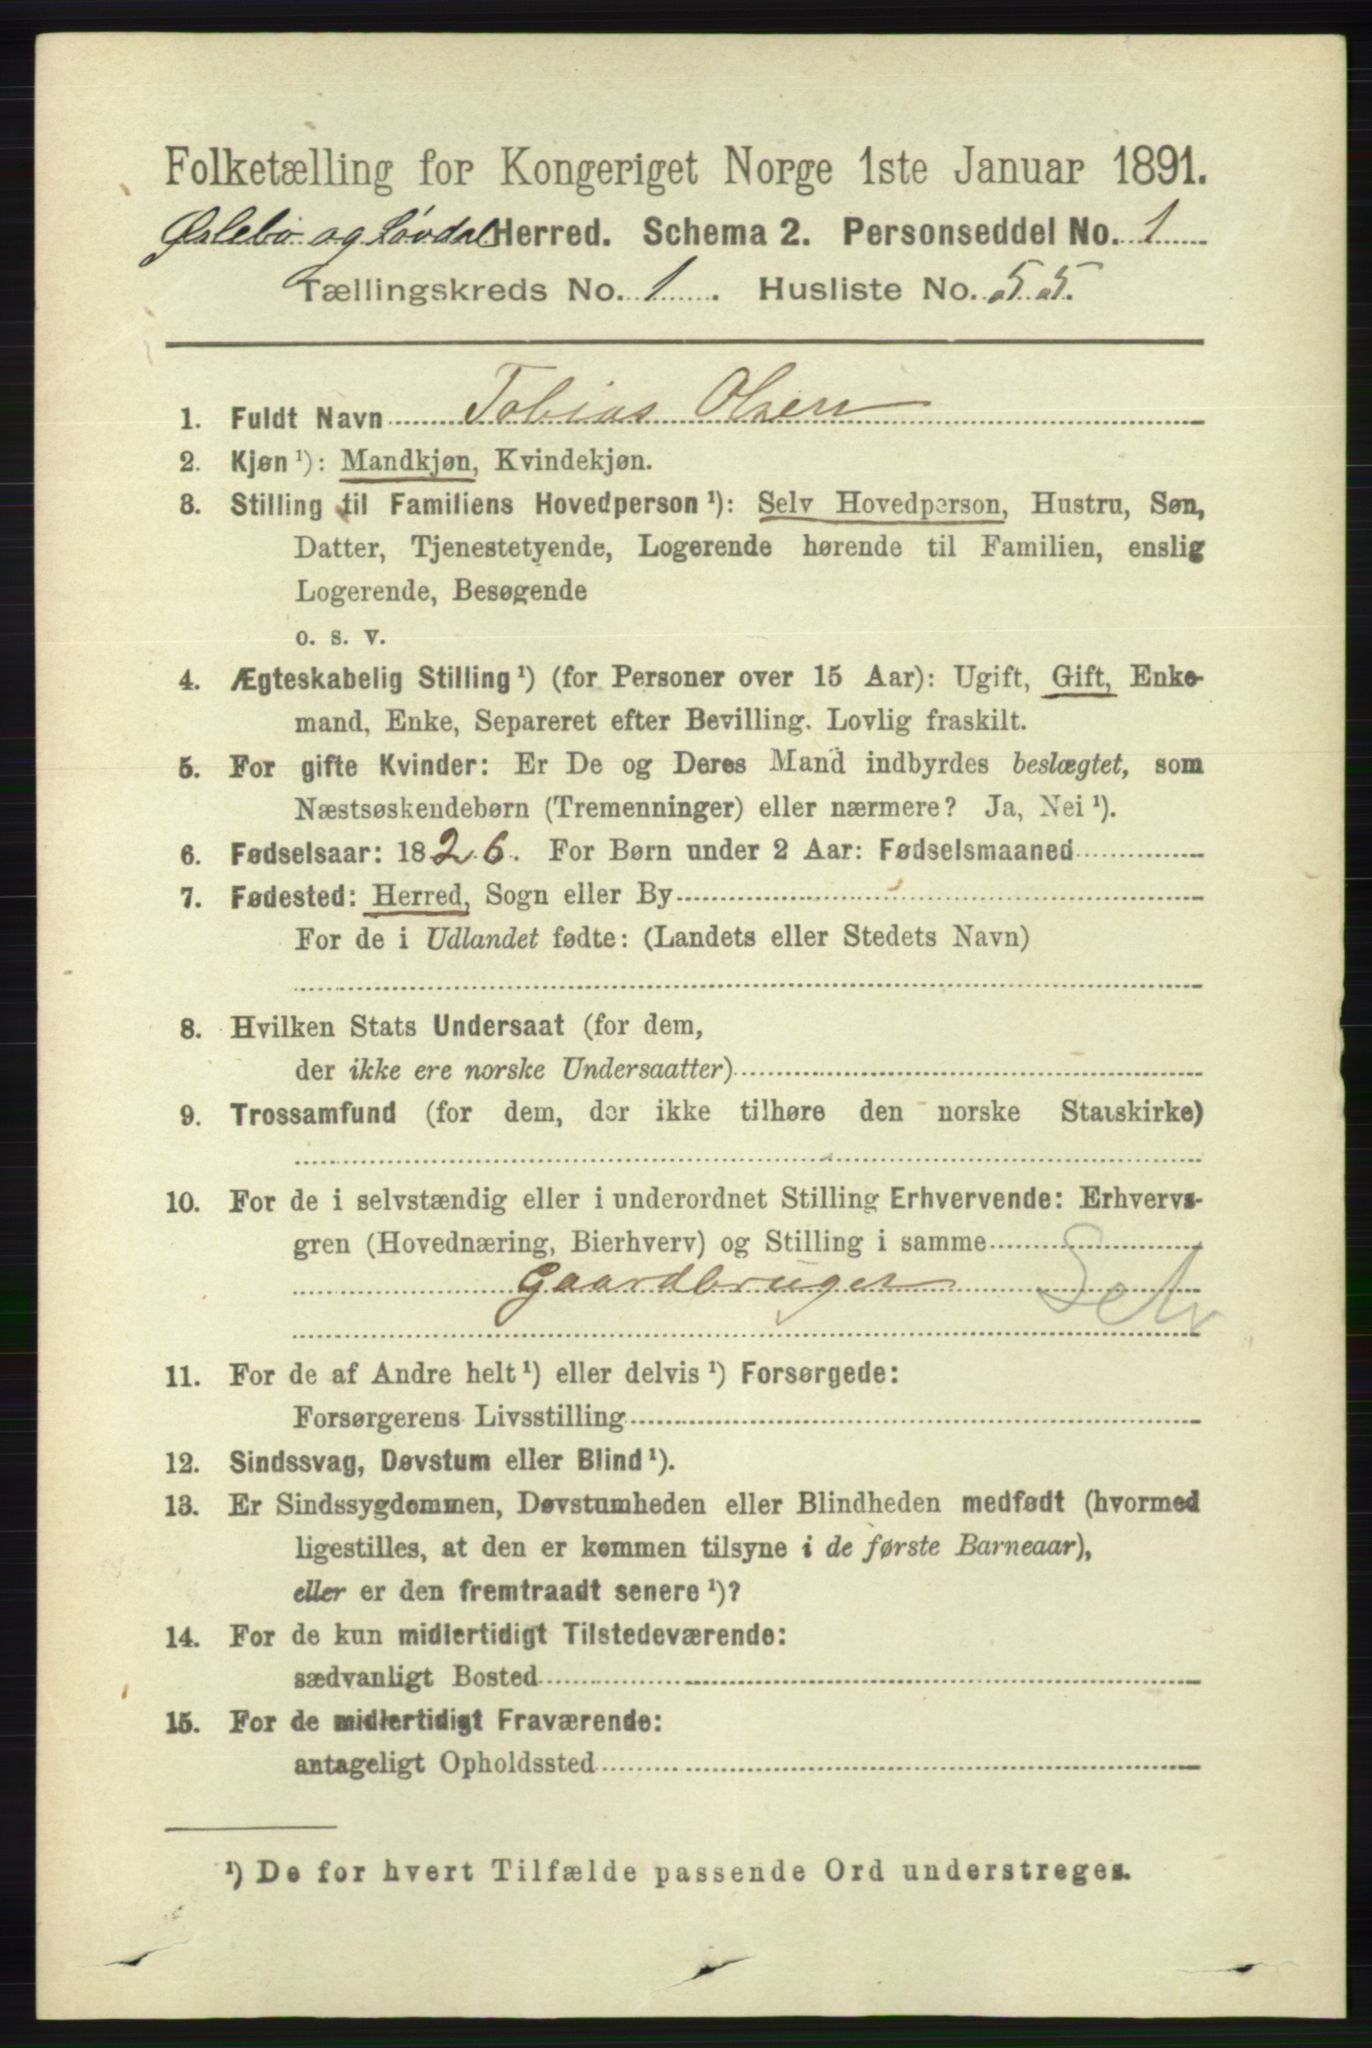 Folketælling for Kongeriget Norge 1ste Januar 1891.
Øslebø og Løvdal Herred. Schema 2. Personseddel No. 1
Tællingskreds No. 1. Husliste No. 55.
1. Fuldt Navn Tobias Olsen
2. Kjøn ¹): Mandkjøn, Kvindekjøn.
3. Stilling til Familiens Hovedperson ¹): Selv Hovedperson, Hustru, Søn,
Datter, Tjenestetyende, Logerende hørende til Familien, enslig
Logerende, Besøgende
o. s. v.
4. Ægteskabelig Stilling ¹) (for Personer over 15 Aar): Ugift, Gift, Enke-
mand, Enke, Separeret efter Bevilling. Lovlig fraskilt.
5. For gifte Kvinder: Er De og Deres Mand indbyrdes beslægtet, som
Næstsøskendebørn (Tremenninger) eller nærmere? Ja, Nei ¹).
6. Fødselsaar: 1826. For Børn under 2 Aar: Fødselsmaaned
7. Fødested: Herred, Sogn eller By
For de i Udlandet fødte: (Landets eller Stedets Navn)
8. Hvilken Stats Undersaat (for dem,
der ikke ere norske Undersaatter)
9. Trossamfund (for dem, der ikke tilhøre den norske Statskirke)
10. For de i selvstændig eller i underordnet Stilling Erhvervende: Erhvervs-
gren (Hovednæring, Bierhverv) og Stilling i samme
Gaardbruger Selv
11. For de af Andre helt ¹) eller delvis ¹) Forsørgede:
Forsørgerens Livsstilling
12. Sindssvag, Døvstum eller Blind ¹).
13. Er Sindssygdommen, Døvstumheden eller Blindheden medfødt (hvormed
ligestilles, at den er kommen tilsyne i de første Barneaar),
eller er den fremtraadt senere ¹)?
14. For de kun midlertidigt Tilstedeværende:
sædvanligt Bosted
15. For de midlertidigt Fraværende:
antageligt Opholdssted
¹) De for hvert Tilfælde passende Ord understreges.